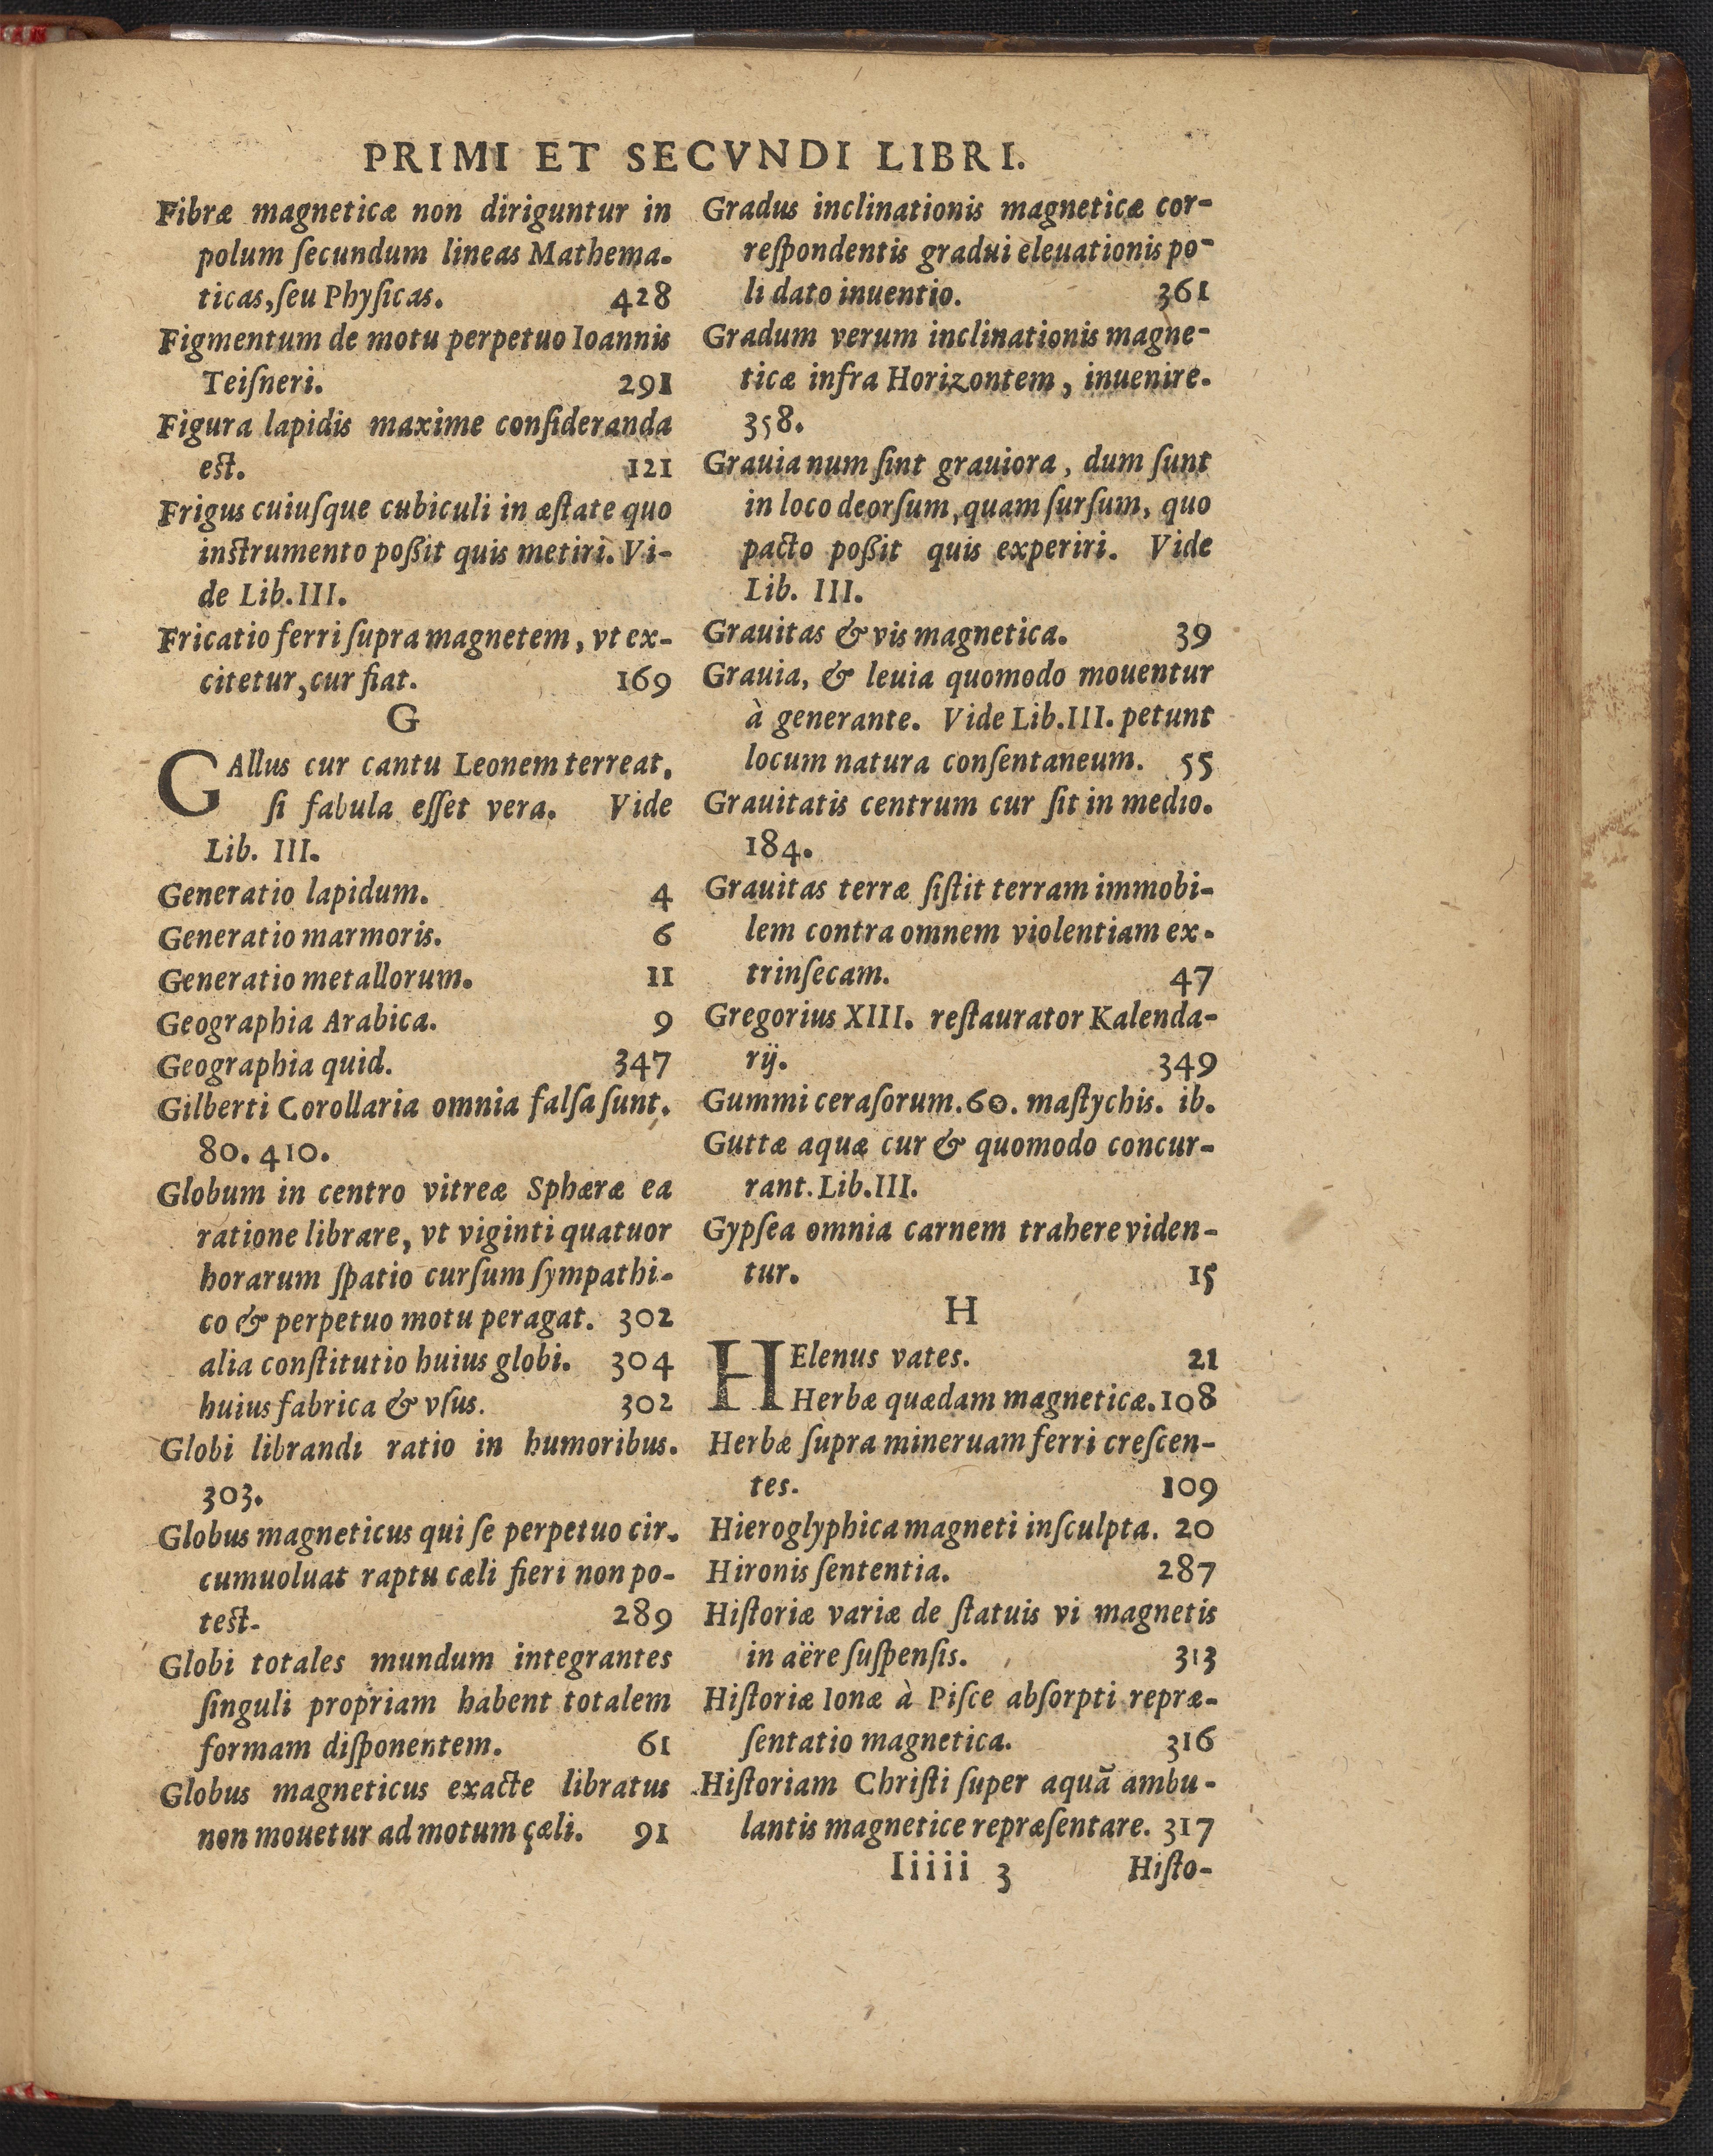 PRIMI ET SECVNDI LIBRI.
Fibræ magneticæ non diriguntur in
polum ſecundum lineas Mathema-
ticas, ſeu Phyſicas. 428
Figmentum de motu perpetuo Ioannis
Teiſneri. 291
Figura lapidis maxime conſideranda
eſt. 121
Frigus cuiuſque cubiculi in æſtate quo
inſtrumento poßit quis metiri. Vi-
de Lib. III.
Fricatio ferri ſupra magnetem, vt ex-
citetur, cur fiat. 169
G
GAllus cur cantu Leonem terreat,
ſi fabula eſſet vera. Vide
Lib. III.
Generatio lapidum. 4
Generatio marmoris. 6
Generatio metallorum. 11
Geographia Arabica. 9
Geographia quid. 347
Gilberti Corollaria omnia falſa ſunt.
80. 410.
Globum in centro vitreæ Sphæræ ea
ratione librare, vt viginti quatuor
horarum ſpatio curſum ſympathi-
co & perpetuo motu peragat. 302
alia conſtitutio huius globi. 304
huius fabrica & vſus. 302
Globi librandi ratio in humoribus.
303.
Globus magneticus qui ſe perpetuo cir-
cumuoluat raptu cæli fieri non po-
teſt. 289
Globi totales mundum integrantes
ſinguli propriam habent totalem
formam diſponentem. 61
Globus magneticus exacte libratus
non mouetur ad motum çæli. 91
Gradus inclinationis magneticæ cor-
reſpondentis gradui eleuationis po-
li dato inuentio. 361
Gradum verum inclinationis magne-
ticæ infra Horizontem, inuenire.
358.
Grauia num ſint grauiora, dum ſunt
in loco deorſum, quam ſurſum, quo
pacto poßit quis experiri. Vide
Lib. III.
Grauitas & vis magnetica. 39
Grauia, & leuia quomodo mouentur
à generante. Vide Lib. III. petunt
locum natura conſentaneum. 55
Grauitatis centrum cur ſit in medio.
184.
Grauitas terræ ſiſtit terram immobi-
lem contra omnem violentiam ex-
trinſecam. 47
Gregorius XIII. reſtaurator Kalenda-
rij. 349
Gummi ceraſorum. 60. maſtychis. ib.
Guttæ aquæ cur & quomodo concur-
rant. Lib. III.
Gypſea omnia carnem trahere viden-
tur. 15
H
HElenus vates. 21
Herbæ quædam magneticæ. 108
Herbæ ſupra mineruam ferri creſcen-
tes. 109
Hieroglyphica magneti inſculpta. 20
Hironis ſententia. 287
Hiſtoriæ variæ de ſtatuis vi magnetis
in aëre ſuſpenſis. 313
Hiſtoriæ Ionæ à Piſce abſorpti repræ-
ſentatio magnetica. 316
Hiſtoriam Chriſti ſuper aquā ambu-
lantis magnetice repræſentare. 317
Iiiii 3 Hiſto-